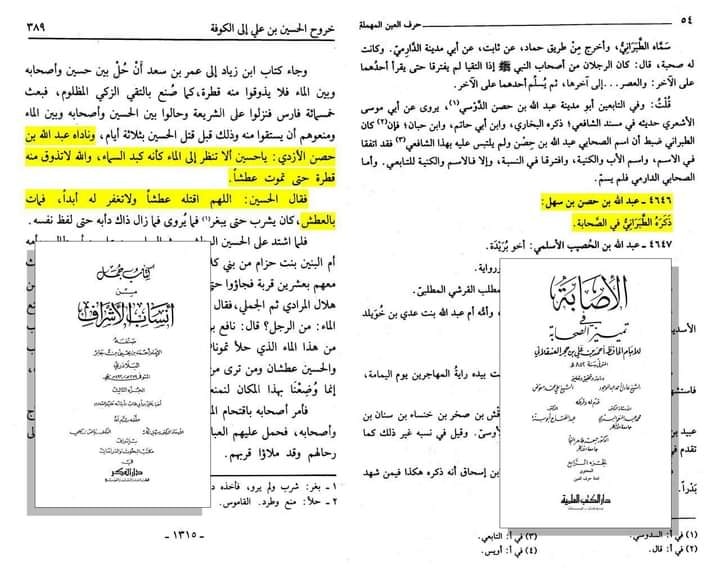 ٥٤
حرف العين المهملة
سَمَّاه الطَّبَرَانِيُّ، وأخرج مِنْ طريق حماد، عن ثابت، عن أبي مدينة الدَّارِميّ. وكانت
له صحبة، قال: كان الرجلان من أصحاب النبي ﷺ إذا التقيا لم يفترقا حتى يقرأ أحدُهما
على الآخر: والعصر...إلى آخرها، ثم يُسلّم أحدهما على الآخر.
قُلْتُ: وفي التابعين أبو مدينة عبد الله بن حصن الدَّوْسي(١)، يروى عن أبي موسى
الأشعري حديثه في مسند الشافعي؛ ذكره البخاري، وابن أبي حاتم، وابن حبان؛ فإن(٢) كان
الطبراني ضبط أن اسم الصحابي عبد الله بن حِصْن ولم يلتبس عليه بهذا الشافعي(٣) فقد اتفقا
في الاسم، واسم الأب والكنية، وافترقا في النسبة، وإلا فالاسم والكنية للتابعي. وأما
الصحابي الدارمي فلم يسمّ.
٤٦٤٦ - عبد الله بن حصن بن سهل:
ذَكَرَهُ الطَّبَرَانِيُّ في الصَّحابة.
٤٦٤٧ - عبد الله بن الحُصيب الأسلمي: أخو بُرَيْدَة.
رواية.
مطلب القرشي المطلبيّ.
وأمه أم عبد الله بنت عدي بن خُوَيلد
الأسدي
بيده رايةُ المهاجرين يوم اليمامة،
فاستشه
بن صخر بن خنساء بن سنان بن
عبيد بن
الأوسيّ. وقيل في نسبه غير ذلك كما
تقدم في
بن إسحاق أنه ذكره هكذا فيمن شهد
بَدْراً.
(١) في أ: السدوسي.
(٣) في أ: التابعي.
(٢) في أ: قال.
(٤) في أ: أويس.
الإصابة
في
تمييز الصحابة
للإمام الحافظ أحمد بن علي بن حجر العسقلاني
دار الكتب العلمية
خروج الحسين بن علي إلى الكوفة
٣٨٩
وجاء كتاب ابن زياد إلى عمر بن سعد أن حُلْ بين حسين وأصحابه
وبين الماء فلا يذوقوا منه قطرة، كما صُنع بالتقي الزكي المظلوم، فبعث
خمسمائة فارس فنزلوا على الشريعة وحالوا بين الحسين وأصحابه وبين الماء
ومنعوهم أن يستقوا منه وذلك قبل قتل الحسين بثلاثة أيام، وناداه عبد الله بن
حصن الأزدي: ياحسين ألا تنظر إلى الماء كأنه كبد السماء، والله لاتذوق منه
قطرة حتى تموت عطشاً.
فقال الحسين: اللهم اقتله عطشاً ولاتغفر له أبداً، فمات
بالعطش، كان يشرب حتى يبغر(١) فما يُروى فما زال ذاك دأبه حتى لفظ نفسه.
فلما اشتد على الحسين
أم البنين بنت حزام من بني كلا
معهم بعشرين قربة فجاؤوا حتى
هلال المرادي ثم الجملي، فقال
الماء: من الرجل؟ قال: نافع بن
من هذا الماء الذي حلأ تمونا
والحسين عطشان ومن ترى من
إنما وُضِعْنا بهذا المكان لنمنع
فأمر أصحابه باقتحام الم
وأصحابه، فحمل عليهم العبا
رحالهم وقد ملاؤا قربهم.
١ - بغر: شرب ولم يرو، فأخذه د
٢ - حلأ: منع وطرد. القاموس.
- ١٣١٥ -
كتاب جمل
من
أنساب الأشراف
البلاذري
دار الفكر